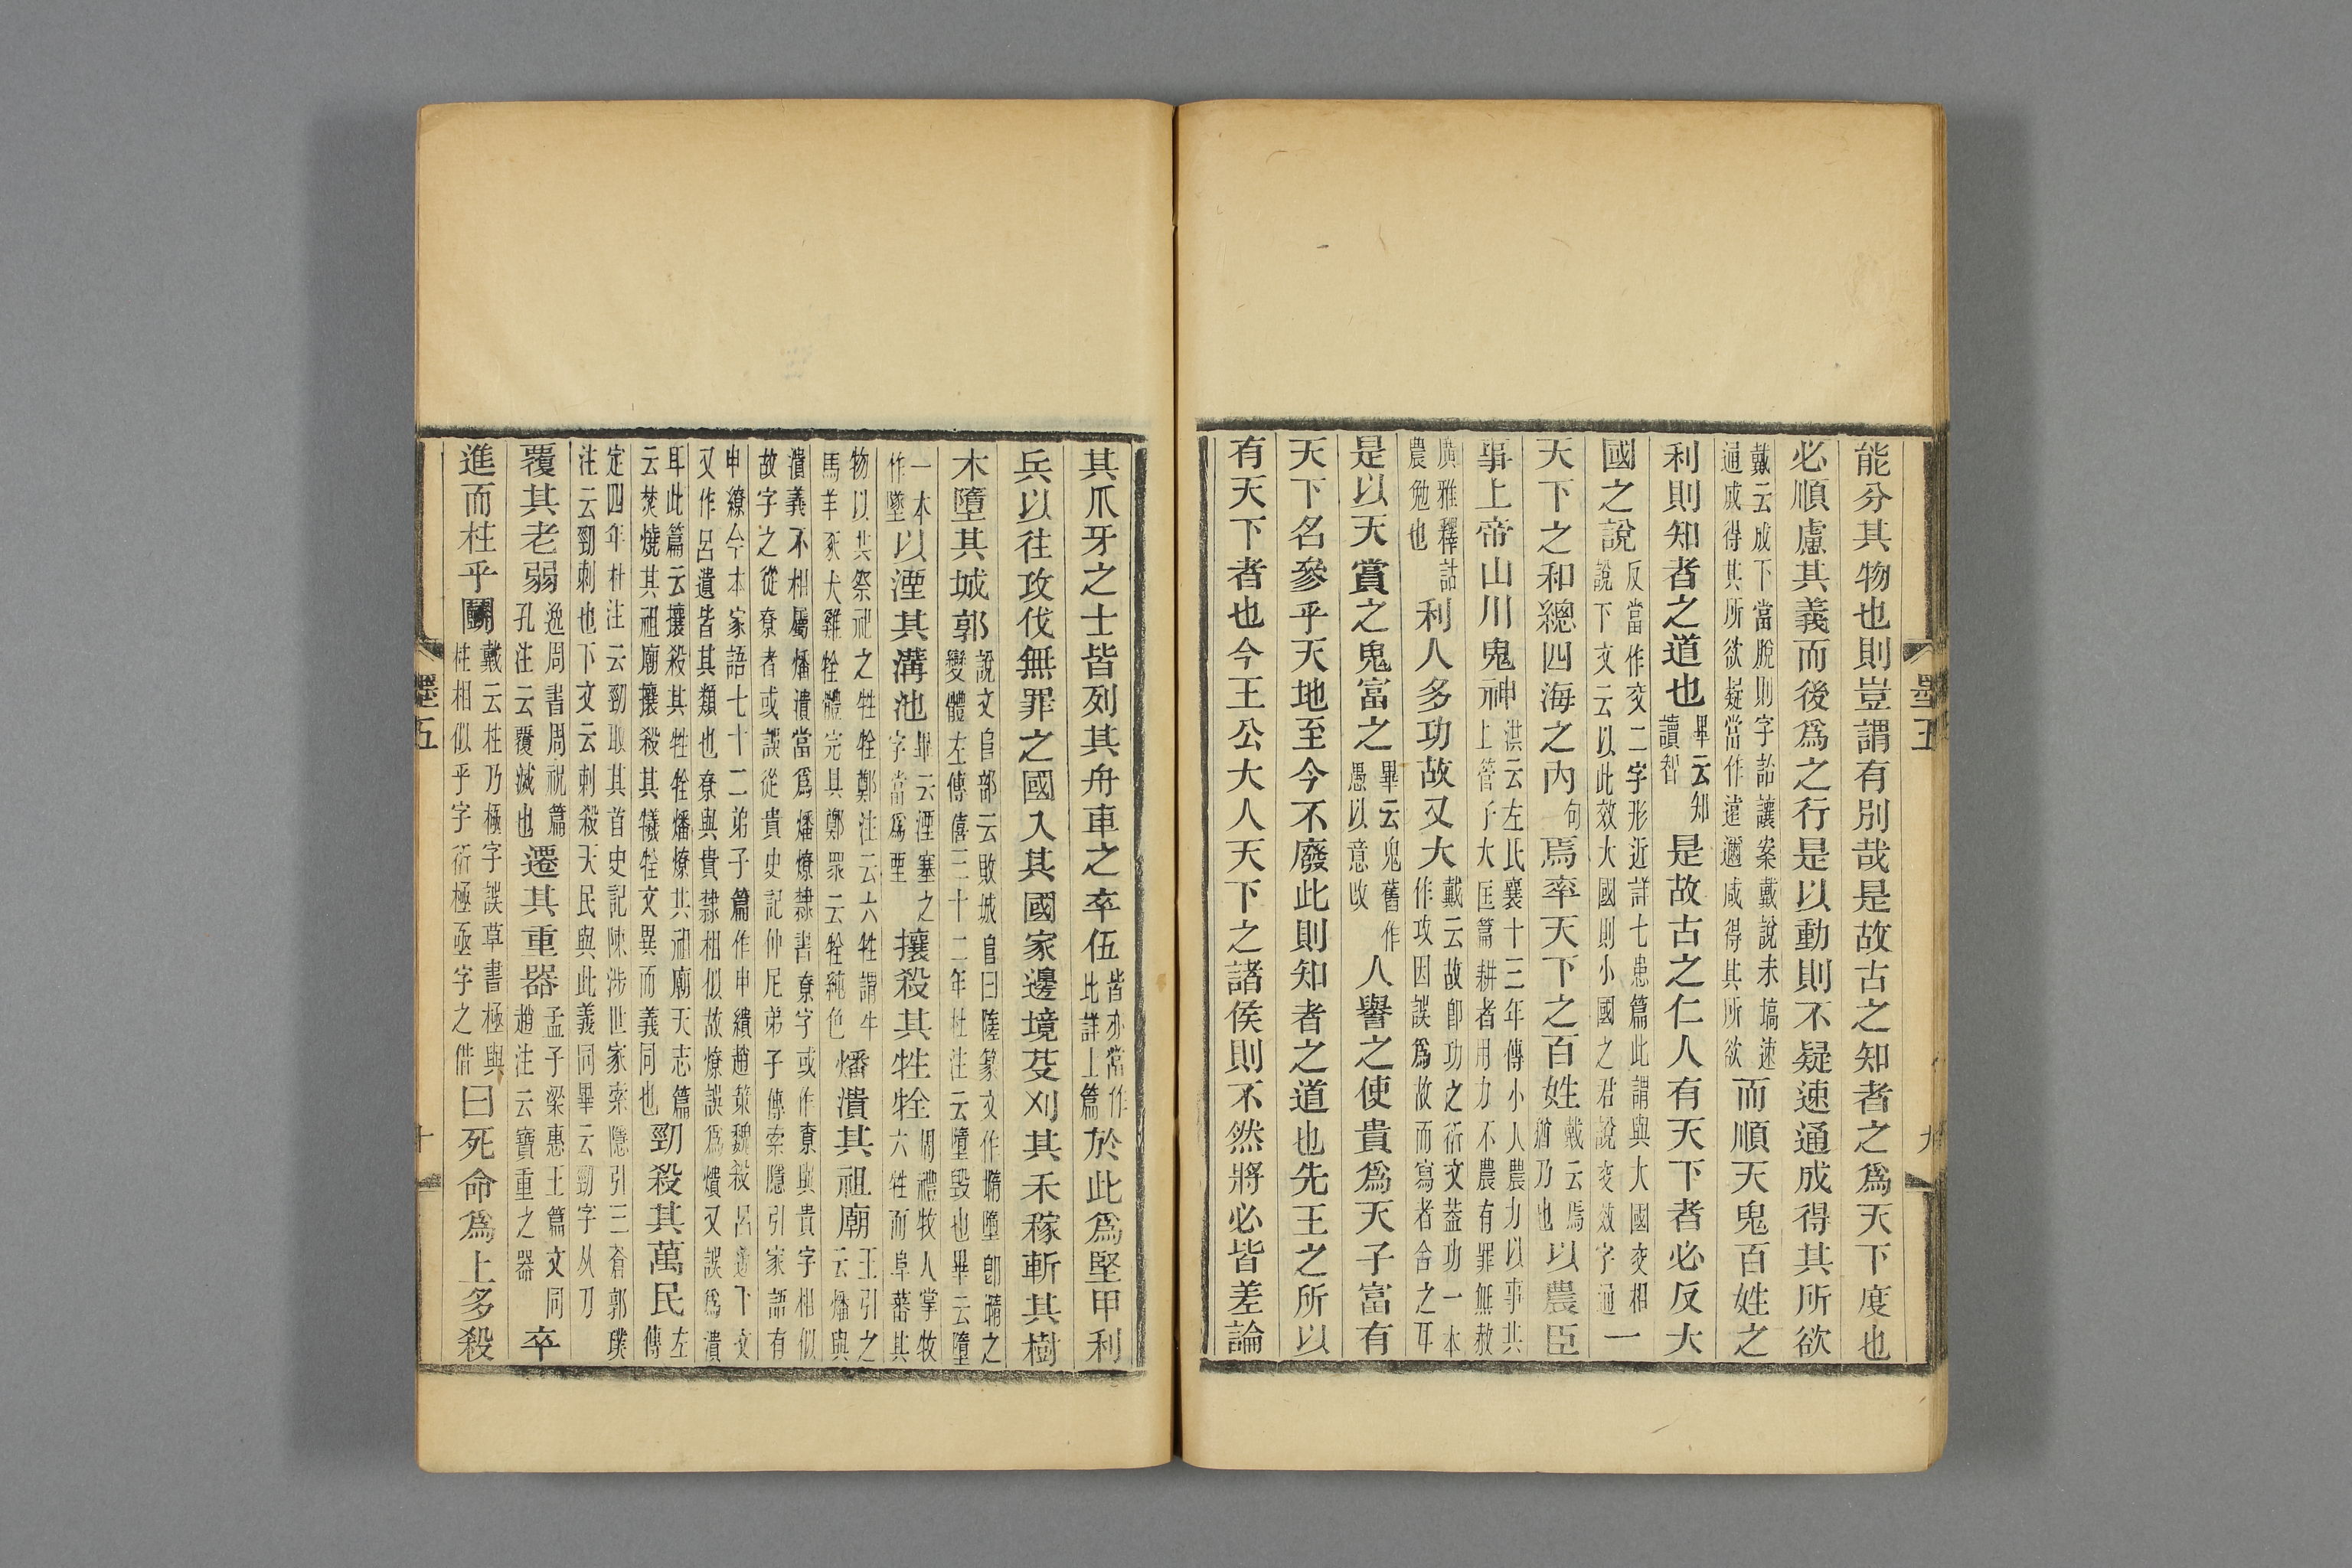 能分其物也則豈謂有別哉是故古之知者之爲天下度也
必順慮其義而後爲之行是以動則不疑速通成得其所欲
戴云成下當脫則字詒讓案戴說未塙速
通成得其所欲疑當作遠邇咸得其所欲
而順天鬼百姓之
利則知者之道也
畢云知
讀智
是故古之仁人有天下者必反大
國之說
反當作交二字形近詳七患篇此謂與大國交相
說下文云以此效大國則小國之君說交效字通
一
天下之和總四海之內
句
焉率天下之百姓
戴云焉
猶乃也
以農臣
事上帝山川鬼神
洪云左氏襄十三年傳小人農力以事其
上管子大匡篇耕者用力不農有罪無赦
廣雅釋詁
農勉也
利人多功故又大
戴云故卽功之衍文蓋功一本
作攻因誤爲故而寫者合之耳
是以天賞之鬼富之
畢云鬼舊作
愚以意改
人譽之使貴爲天子富有
天下名參乎天地至今不廢此則知者之道也先王之所以
有天下者也今王公大人天下之諸侯則不然將必皆差論
墨五
九
其爪牙之士皆列其舟車之卒伍
皆亦當作
比詳上篇
於此爲堅甲利
兵以往攻伐無罪之國入其國家邊境芟刈其禾稼斬其樹
木墮其城郭
說文𨸏部云敗城𨸏曰隓篆文作墯墮卽墯之
變體左傳僖三十二年杜注云墮毀也畢云墮
一本
作墜
以湮其溝池
畢云湮塞之
字當爲垔
攘殺其牲牷
周禮牧人掌牧
六牲而阜蕃其
物以共祭祀之牲牷鄭注云六牲謂牛
馬羊豕犬雞牷體完具鄭眾云牷純色
燔潰其祖廟
王引之
云燔與
潰義不相屬燔潰當爲燔燎隸書尞字或作𡩡與貴字相似
故字之從尞者或誤從貴史記仲尼弟子傳索隱引家語有
申繚今本家語七十二弟子篇作申繢趙策魏殺呂遼下文
又作呂遺皆其類也尞與貴隸相似故燎誤爲燌又誤爲潰
耳此篇云攘殺其牲牷燔燎其祖廟天志篇
云焚燒其祖廟攘殺其犧牷文異而義同也
勁殺其萬民
左
傳
定四年杜注云勁取其首史記陳涉世家索隱引三蒼郭璞
注云勁刺也下文云刺殺天民與此義同畢云勁字从刀
覆其老弱
逸周書周祝篇
孔注云覆滅也
遷其重器
孟子梁惠王篇文同
趙注云寶重之器
卒
進而柱乎鬭
戴云柱乃極字誤草書極與
柱相似乎字衍極亟字之借
曰死命爲上多殺
墨五
十